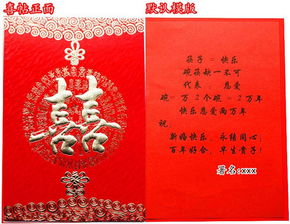 喜帖正面
默认模版
囍
筷子 = 快乐
碗筷缺一不可
代表 恩爱
碗=万 2个碗=2万年
快乐恩爱两万年
祝
新婚快乐，永结同心，
百年好合，早生贵子！
署名:xxx